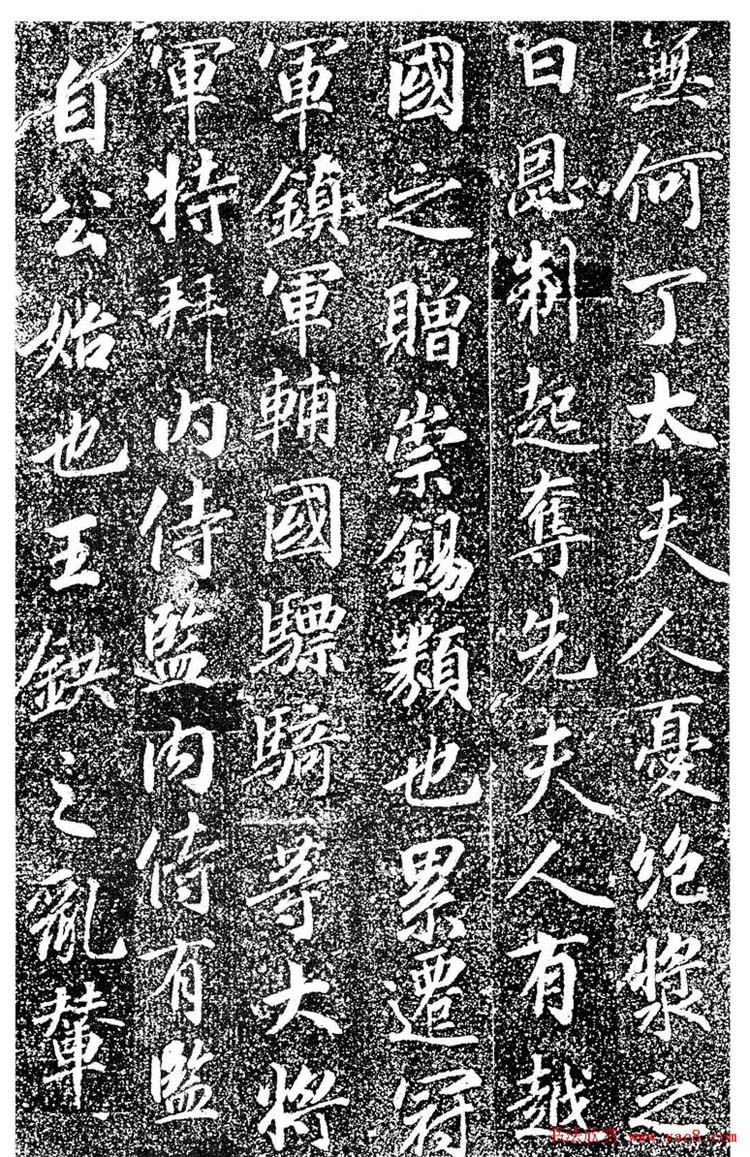 無何丁太夫人憂絶漿之
日恩制起奪先夫人有越
國之贈崇錫類也累遷冠
軍鎮軍輔國驃騎等大將
軍特拜内侍監内侍有監
自公始也王鉷之亂輦
书法欣赏 www.yac8.com